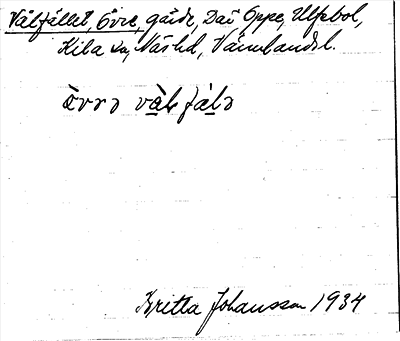 Vålfjället, Övre, gårde, Där Oppe, Ulvbol,
Kila sn, Näs hd, Värmlands l.
ö̀vrə vàls fjálə
Britta Johansson 1934